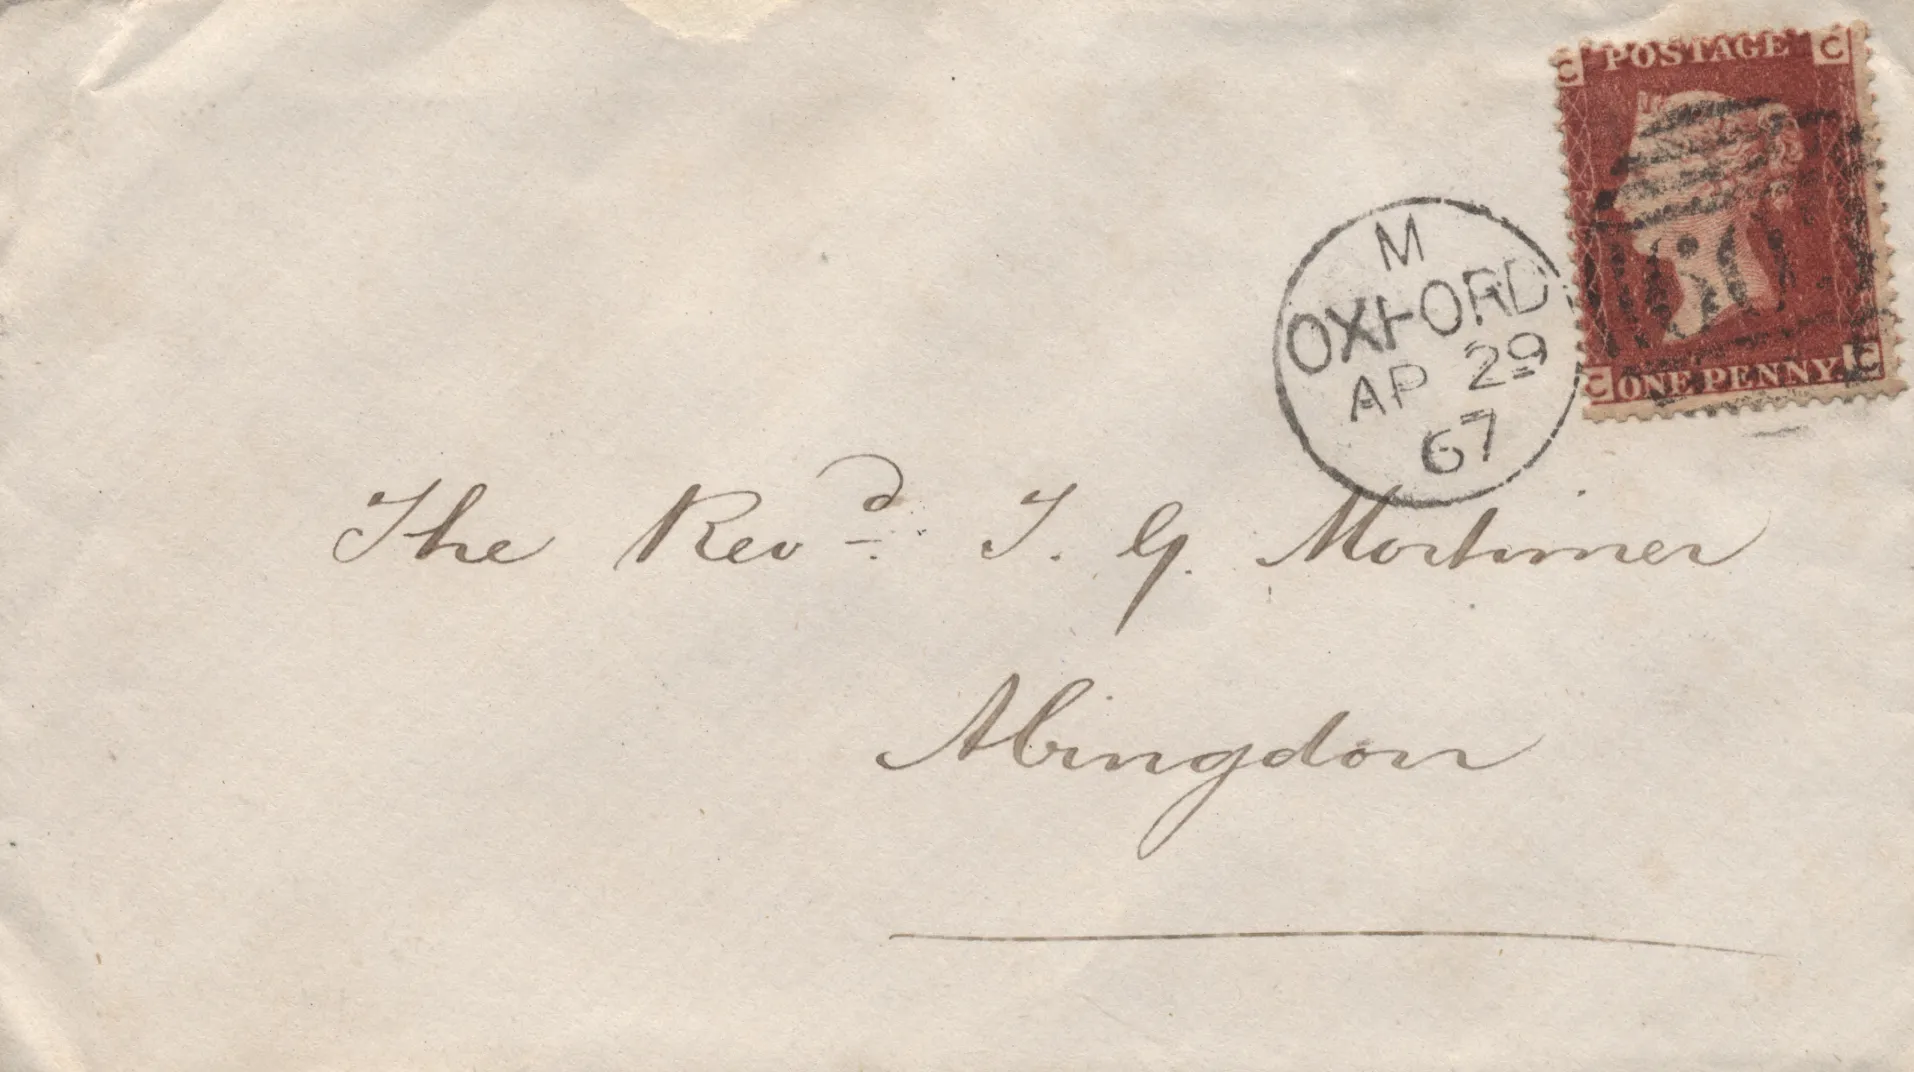 C POSTAGE C
M
OXFORD
AP 29
67
C ONE PENNY C
The Revd. T. G. Mortimer
Abingdon